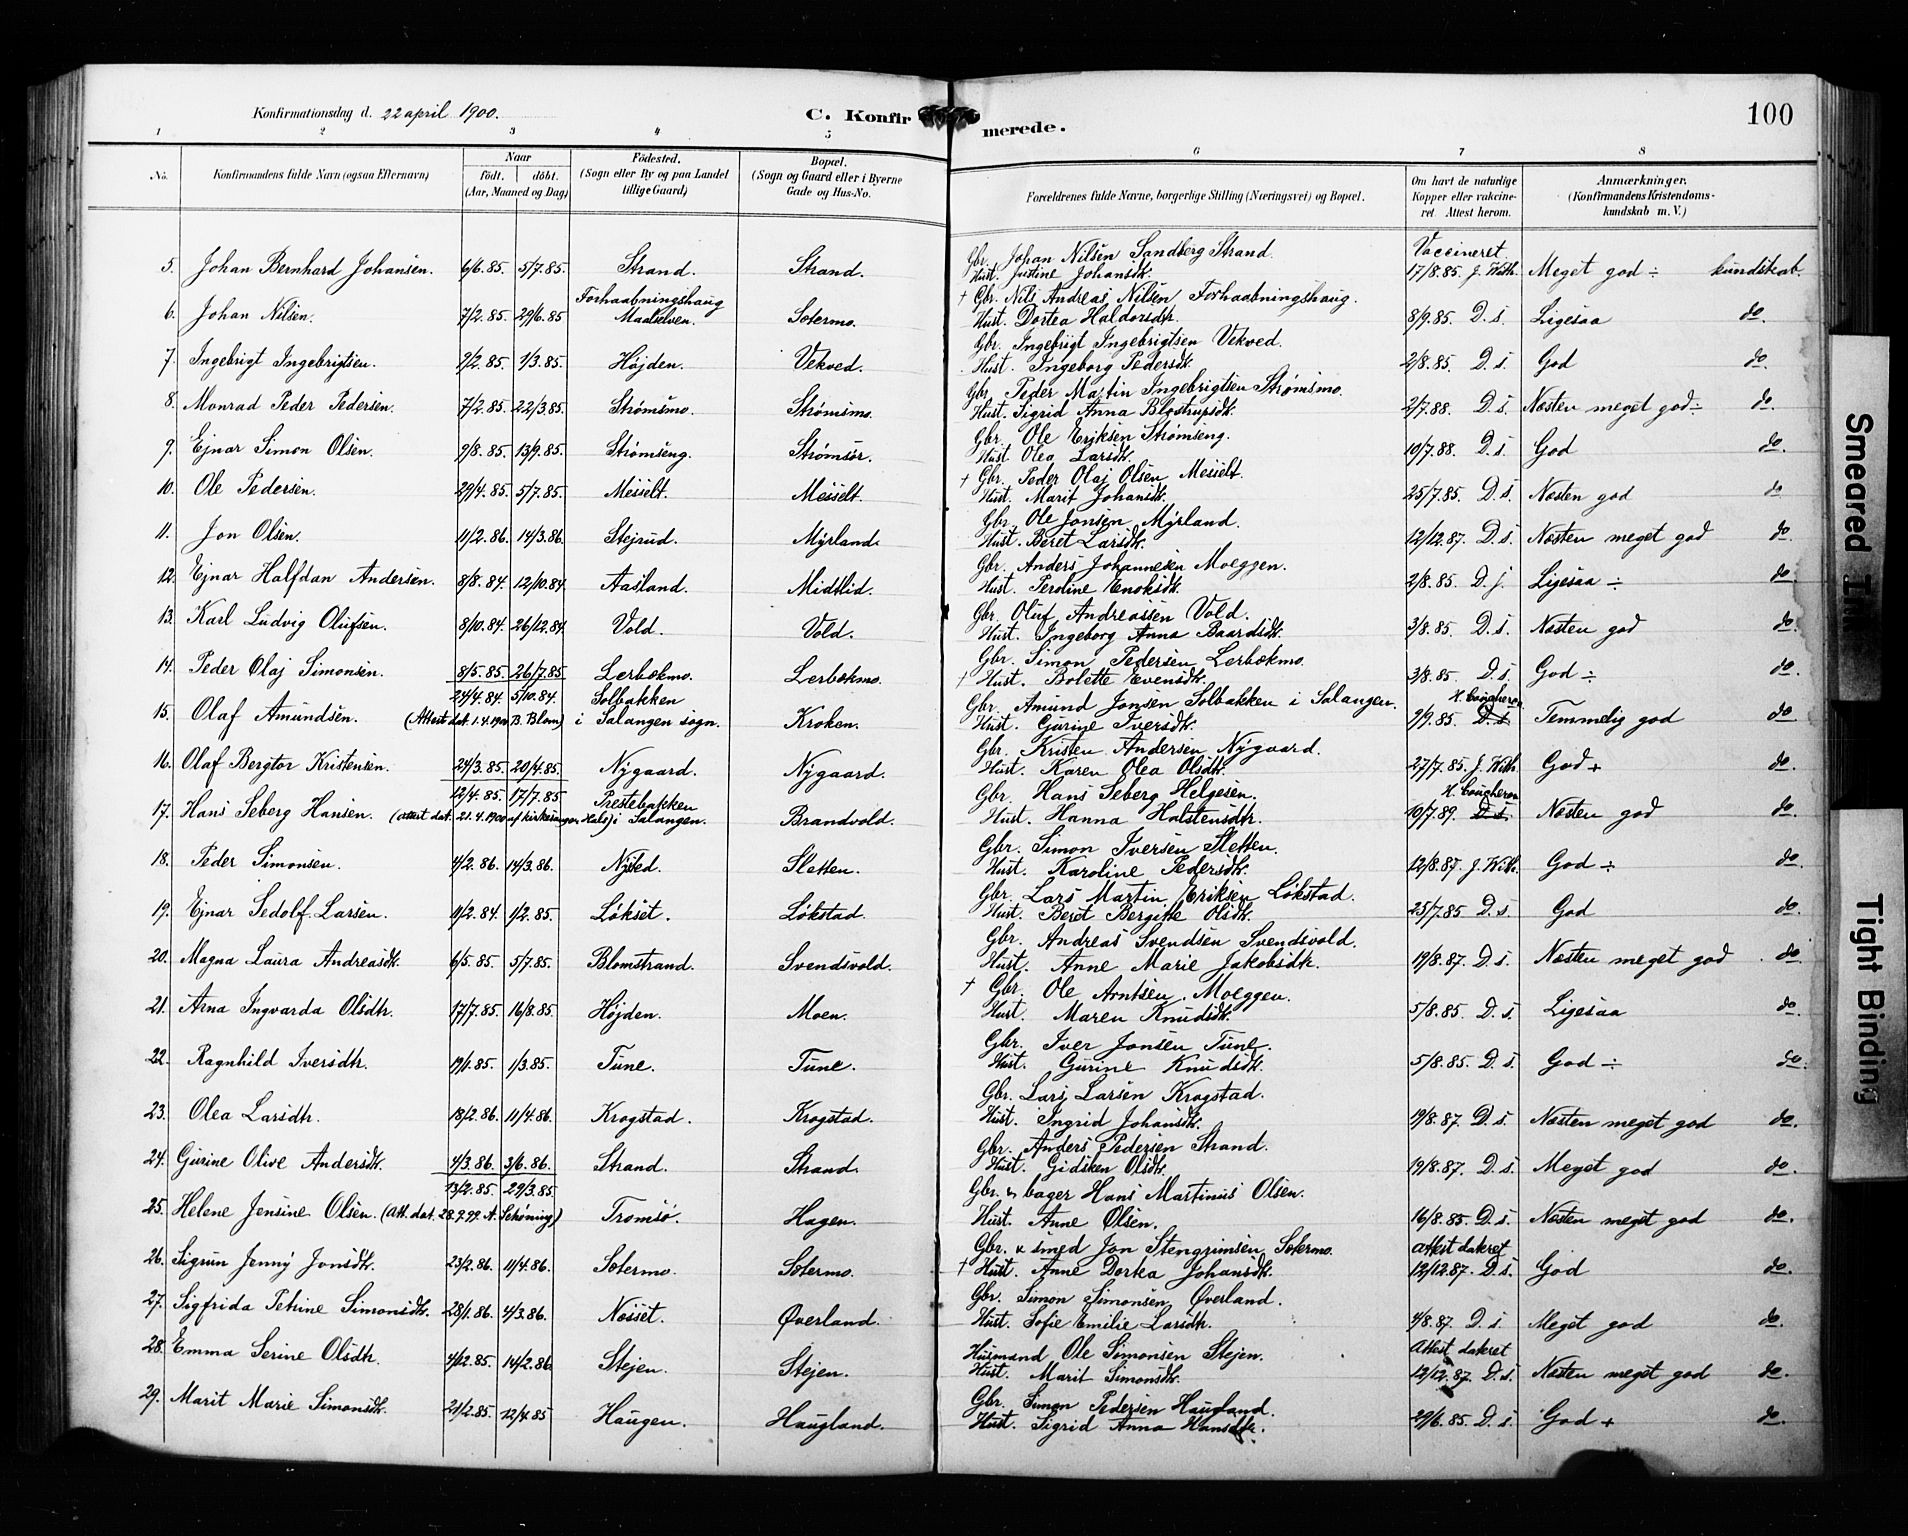 Konfirmationsdag d. 22 april 1900.
C. Konfirmerede.
100
1 2 3 4 5 6 7 8
No.
Konfirmandens fulde Navn (ogsaa Efternavn)
Naar
födt. döbt.
(Aar, Maaned og Dag)
Födested.
(Sogn eller By og paa Landet
tillige Gaard)
Bopæl.
(Sogn og Gaard eller i Byerne
Gade og Hus-No.
Forældrenes fulde Navne, borgerlige Stilling (Næringsvei) og Bopæl.
Om havt de naturlige
Kopper eller vakcine-
ret. Attest herom.
Anmærkninger.
(Konfirmandens Kristendoms-
kundskab m. V.)
Gbr. Johan Nilsen Sandberg Strand. Vaccineret
5. Johan Bernhard Johansen. 6/6.85. 5/7.85. Strand. Strand. Hust. Justine Johansdt. 17/8.85. J. With. Meget god ÷ kundskab.
Forhaabningshaug † Gbr. Nils Andreas Nilsen Forhaabningshaug.
6. Johan Nilsen. 7/2.85. 29/6.85 Maalselven. Sætermo. Hust. Dortea Haldorsdtr. 8/9.85. D. s. Ligesaa do.
Gbr. Ingebrigt Ingebrigtsen Vekved.
7. Ingebrigt Ingebrigtsen. 9/2.85. 1/3.85. Højden. Vekved. Hust. Ingeborg Pedersdt. 2/8.85. D. s. God do.
Gbr. Peder Martin Ingebrigtsen Strømsmo.
8. Monrad Peder Pedersen. 7/2.85. 22/3.85. Strømsmo. Strømsmo. Hust. Sigrid Anna Blostrupsdt. 2/7.88. D. s. Næsten meget god ÷ do.
Gbr. Ole Eriksen Strømseng.
9. Ejnar Simon Olsen. 9/8.85. 13/9.85. Strømseng. Strømsør. Hust. Olea Larsdt. 10/7.88. D. s. God do.
† Gbr. Peder Olaj Olsen Messelt.
10. Ole Pedersen. 29/4.85. 5/7.85. Messelt. Messelt. Hust. Marit Johansdt. 25/7.85. D. s. Næsten god do
Gbr. Ole Jonsen Myrland.
11. Jon Olsen. 11/2.86. 14/3.86. Stejrud. Myrland. Hust. Beret Larsdtr. 12/12.87. D. s. Næsten meget god do.
Gbr. Anders Johannesen Moeggen.
12. Ejnar Halfdan Andersen. 8/8.84. 12/10.84. Aasland. Midtlid. Hust. Peroline Enoksdt. 2/8.85. D. s. Ligesaa ÷ do.
Gbr. Oluf Andreassen Vold.
13. Karl Ludvig Olufsen. 8/10.84. 26/12.84. Vold. Vold. Hust. Ingeborg Anna Baardsdt. 3/8.85. D. s. Næsten god do.
Gbr. Simon Pedersen Lerbækmo.
14. Peder Olaj Simonsen. 8/5.85. 26/7.85 Lerbækmo. Lerbækmo. † Hust. Bolette Evensdt. 3/8.85. D. s. God ÷ do.
24/4.84. 5/10.84. Solbakken Gbr. Amund Jonsen Solbakken i Salangen. H. Coucheron
15. Olaf Amundsen. (Attest dat. 1.4.1900 B. Blom) i Salangen sogn. Kroken. Hust. Gurine Iversdt. 9/9.85. D. s. Temmelig god do.
Gbr. Kristen Andersen Nygaard.
16. Olaf Bergtor Kristensen. 24/3.85. 20/4.85. Nygaard. Nygaard. Hust. Karen Olea Olsdt. 27/7.85. J. With. God + do.
12/4.85. 17/7.85 Prestebakken Gbr. Hans Seberg Helgesen. H. Coucheron
17. Hans Seberg Hansen. (attest dat. 21.4.1900 af kirkesanger Hals) i Salangen. Brandvold. Hust. Hanna Halstensdtr. 10/7.89. D. s. Næsten god do.
Gbr. Simon Iversen Sletten.
18. Peder Simonsen. 4/2.86. 14/3.86. Nysted. Sletten. Hust. Karoline Pedersdt. 12/8.87. J. With. God ÷ do.
Gbr. Lars Martin Eriksen Løkstad.
19. Ejnar Sedolf Larsen. 11/2.84. 1/2.85. Løkset. Løkstad. Hust. Beret Bergitte Olsdt. 25/7.85 D. s. God do.
Gbr. Andreas Svendsen Svendsvold.
20. Magna Laura Andreasdt. 6/5.85. 5/7.85. Blomstrand. Svendsvold. Hust. Anne Marie Jakobsdtr. 19/8.87. D. s. Næsten meget god do.
† Gbr. Ole Arntsen Moeggen.
21. Arna Ingvarda Olsdtr. 17/7.85. 16/8.85. Højden. Moen. Hust. Maren Knudsdt. 5/8.85. D. s. Ligesaa do.
Gbr. Iver Jonsen Tune.
22. Ragnhild Iversdtr. 19/1.85. 1/3.85. Tune. Tune. Hust. Gurine Knudsdt. 5/8.85. D. s. God ÷ do.
Gbr. Lars Larsen Krogstad.
23. Olea Larsdtr. 18/2.86. 11/4.86. Krogstad. Krogstad. Hust. Ingrid Johansdt. 19/8.87. D. s. Næsten meget god do.
Gbr. Anders Pedersen Strand.
24. Gurine Olive Andersdt. 4/3.86. 3/6.86. Strand. Strand. Hust. Gidsken Olsdt. 19/8.87. D. s. Meget god do.
13/2.85. 29/3.85. Gbr. & bager Hans Martinus Olsen.
25. Helene Jensine Olsen. (Att. dat. 28.9.99 A. Schöning) Tromsø. Hagen. Hust. Anne Olsen. 16/8.85. D. s. Næsten meget god do.
Gbr. & smed Jon Stengrimsen Sætermo. Attest dateret
26. Sigrun Jenny Jonsdt. 23/2.86. 11/4.86. Sætermo. Sætermo. † Hust. Anne Dorka Johansdt. 12/12.87. D. s. God do.
Gbr. Simon Simonsen Øverland.
27. Sigfrida Petrine Simonsdt. 28/1.86. 4/3.86. Nesset. Øverland. Hust. Sofie Emilie Larsdtr. 4/8.87. D. s. Meget god do.
Husmand Ole Simonsen Stejen. Attest dateret
28. Emma Serine Olsdtr. 4/12.85. 14/2.86 Stejen. Stejen. Hust. Marit Simonsdt. 12/12.87. D. s. Næsten meget god do.
Gbr. Simon Pedersen Haugland.
29. Marit Marie Simonsdt. 21/2.85. 12/4.85 Haugen. Haugland. Hust. Sigrid Anna Hansdtr. 29/6.85. D. s. God + do.
Smeared Ink
Tight Binding